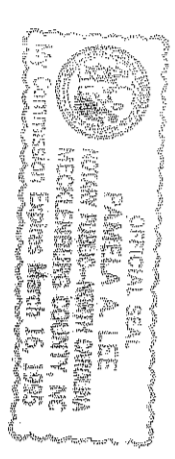 OFFICIAL SEAL
PAMELA A. LEE
NOTARY PUBLIC-NORTH CAROLINA
MECKLENBURG COUNTY, NC
My Commission Expires March 16,